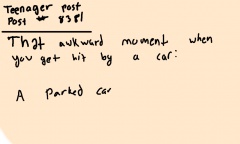 Teenager post
Post # 8381
That awkward moment when
you get hit by a car:
A parked car